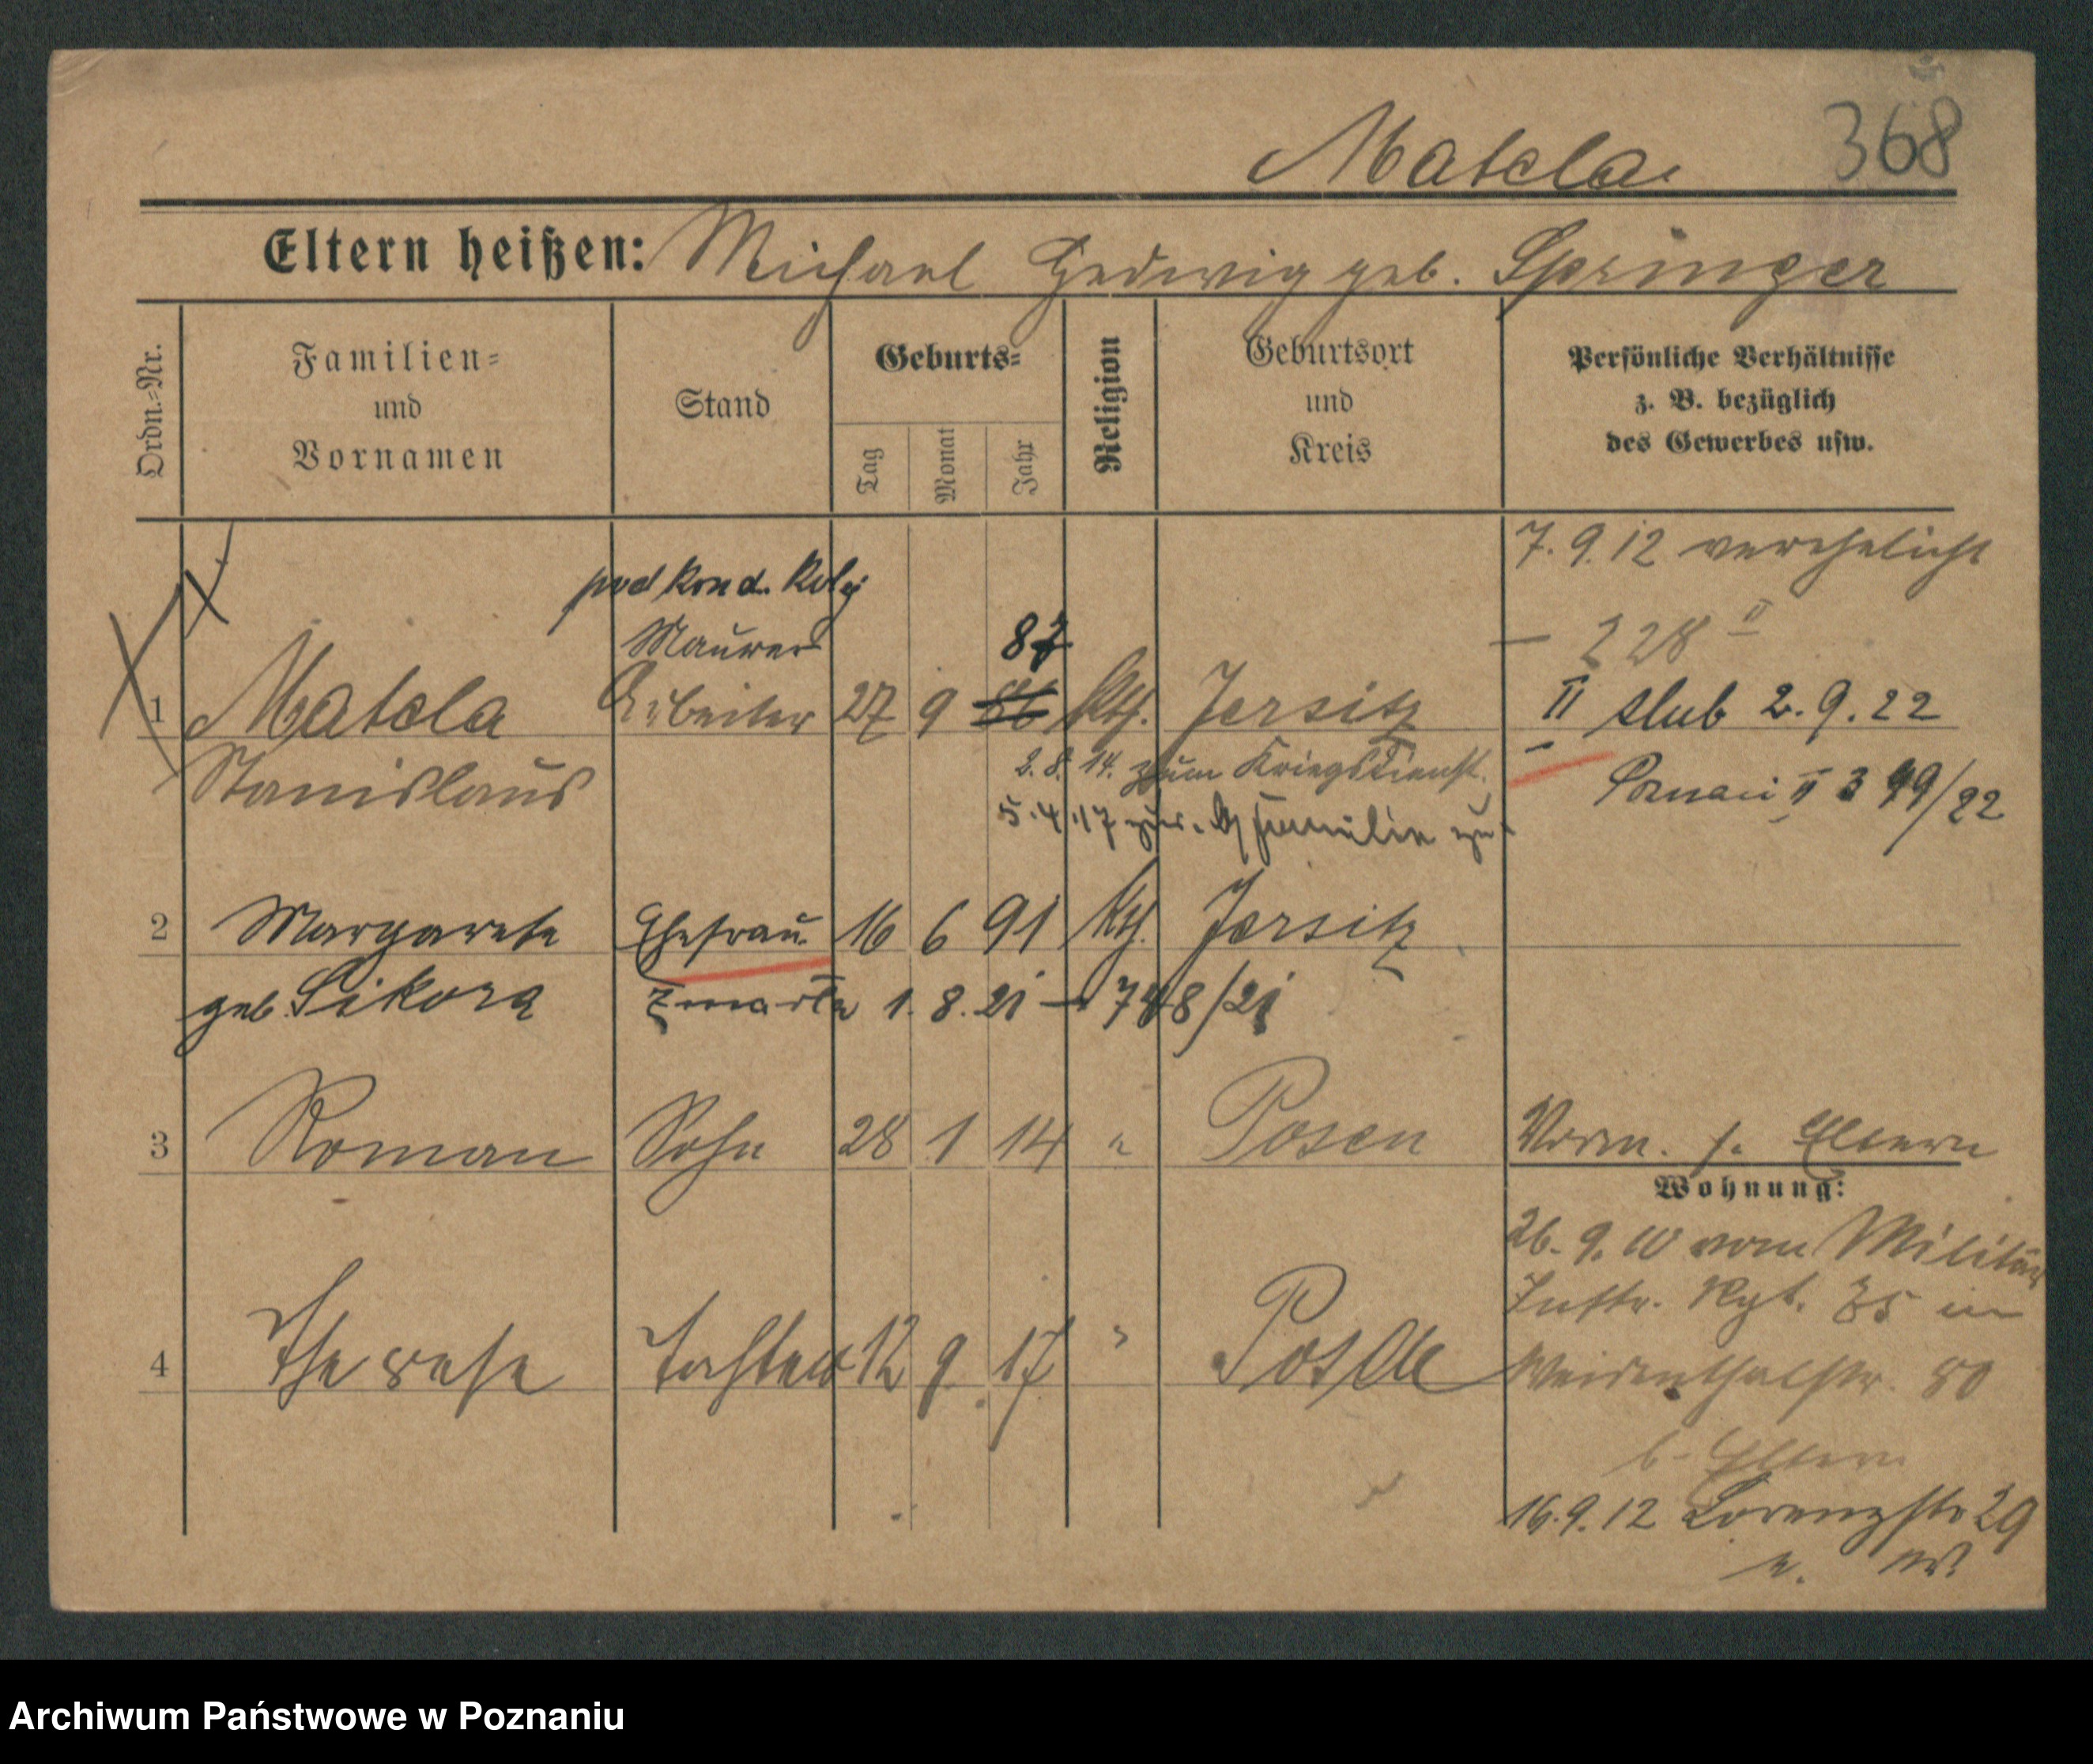 368
Matela
Eltern heißen: Michael Hedwig geb. Springer
Ordn.-Nr.
Familien- und Vornamen
Stand
Geburts-
Tag
Monat
Jahr
Religion
Geburtsort und Kreis
Persönliche Verhältnisse
z. B. bezüglich
des Gewerbes usw.
7.9.12 verehelicht
pod kond. Kolej
Maurer
87
— 228 II
1 Matela Arbeiter 27 9 86 kth. Jersitz
II slub 2.9.22
Stanislaus
2.8.14. zum Kriegsdienst.
Poznań II 399/22
5.4.17 zur Familie
2 Margarete Ehefrau 16 6 91 kth. Jersitz
geb. Sikora zmarła 1.8.21 748/21
3 Roman Sohn 28 1 14 " Posen
Vorm. s. Eltern
Wohnung:
26.9.10 vom Militär
Inftr. Rgt. in
4 Therese Tochter 12 9 17 " Posen
80
b. Eltern
16.9.12 Lorenzstr 29
Archiwum Państwowe w Poznaniu